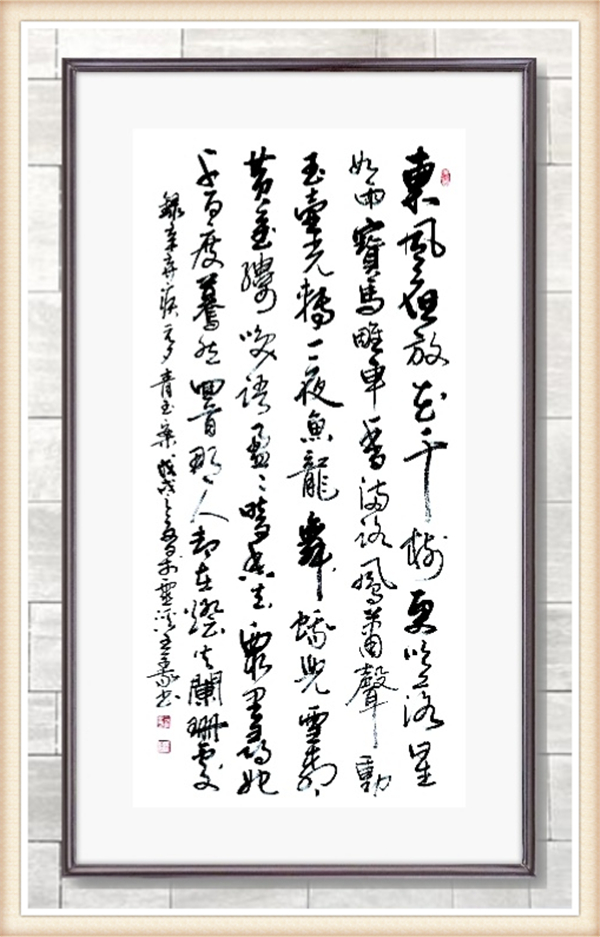 東風夜放花千樹更吹落星
如雨寶馬雕車香滿路鳳簫聲動
玉壺光轉一夜魚龍舞蛾兒雪柳
黃金縷笑語盈盈暗香去眾里尋他
千百度驀然回首那人却在燈火闌珊處
錄辛弃疾元夕青玉案戊戌之 於靈溪王 書